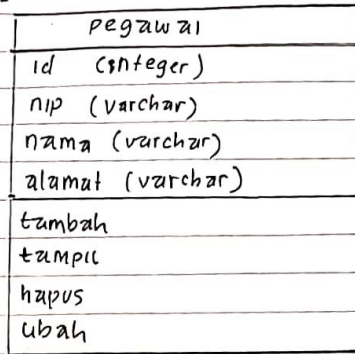 pegawai
id (integer)
nip (varchar)
nama (varchar)
alamat (varchar)
tambah
tampil
hapus
ubah